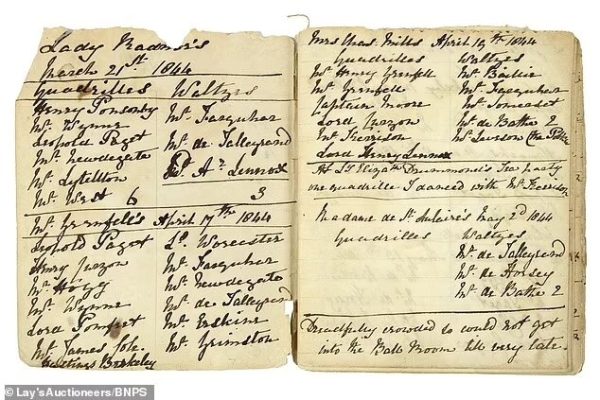 Lady Radnor's
March 21st. 1844
Quadrilles Waltzes
Henry Ponsonby Mr. Farquhar
Mr. Wynne
Leopold Paget Mr. de Talleyrand
Mr. Newdegate
Mr. Lyttilton Ld. Ar. Lennox
Mr. West 6 3
Mr. Grenfell's April 17th 1844
Leopold Paget Ld. Worcester
Henry Mr. Farquhar
Mr. Hogg Mr. Newdegate
Mr. Wynne Mr. de Talleyrand
Lord Pomfret Mr. Erskine
Mr. James Cole. Mr. Grimston
Hastings Berkeley
Mrs Chas. Mills April 19th 1844
Quadrilles Waltzes
Mr. Henry Grenfell Mr. Bailie
Mr. Grenfell Mr. Farquhar
Captain Moore Mr. Somerset
Lord Mr. de Bathe 2
Mr. Kerrison Mr. Lawson (the
Lord Henry Lennox
At Ly. Elizath. Drummond's Tea party
one quadrille I danced with Mr. Kerrison
Madame de St. Aulaire's May 2d 1844
Quadrilles Waltzes
Mr. de Talleyrand
Mr. de Horsey
Mr. de Bathe 2
Dreadfully crowded so could not get
into the Ball Room till very late.
© Lay's Auctioneers/BNPS